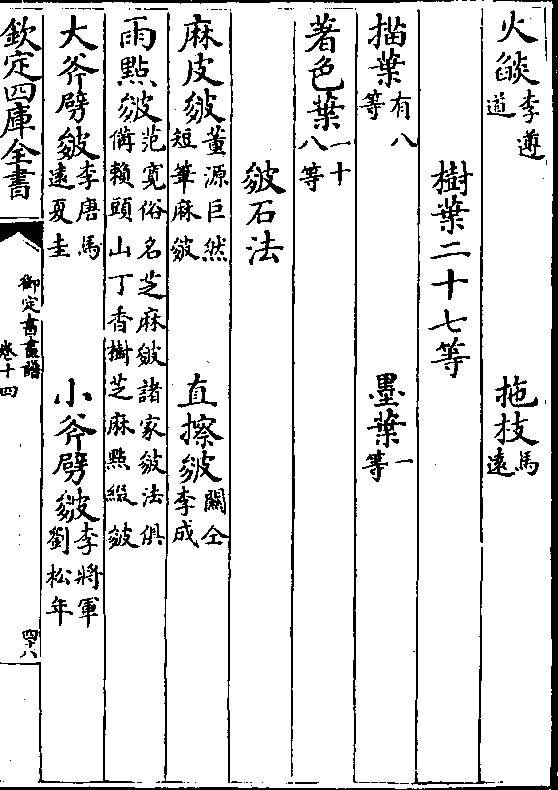 火燄李遵道 拖枝馬遠
樹葉二十七等
描葉有八等 墨葉一等
著色葉一十八等
皴石法
麻皮皴董源巨然短筆麻皴 直擦皴關仝李成
雨點皴范寛俗名芝麻皴諸家皴法俱備賴頭山丁香樹芝麻點綴皴
大斧劈皴李唐馬遠夏圭 小斧劈皴李將軍劉松年
欽定四庫全書 御定書畫譜 卷十四 四十八